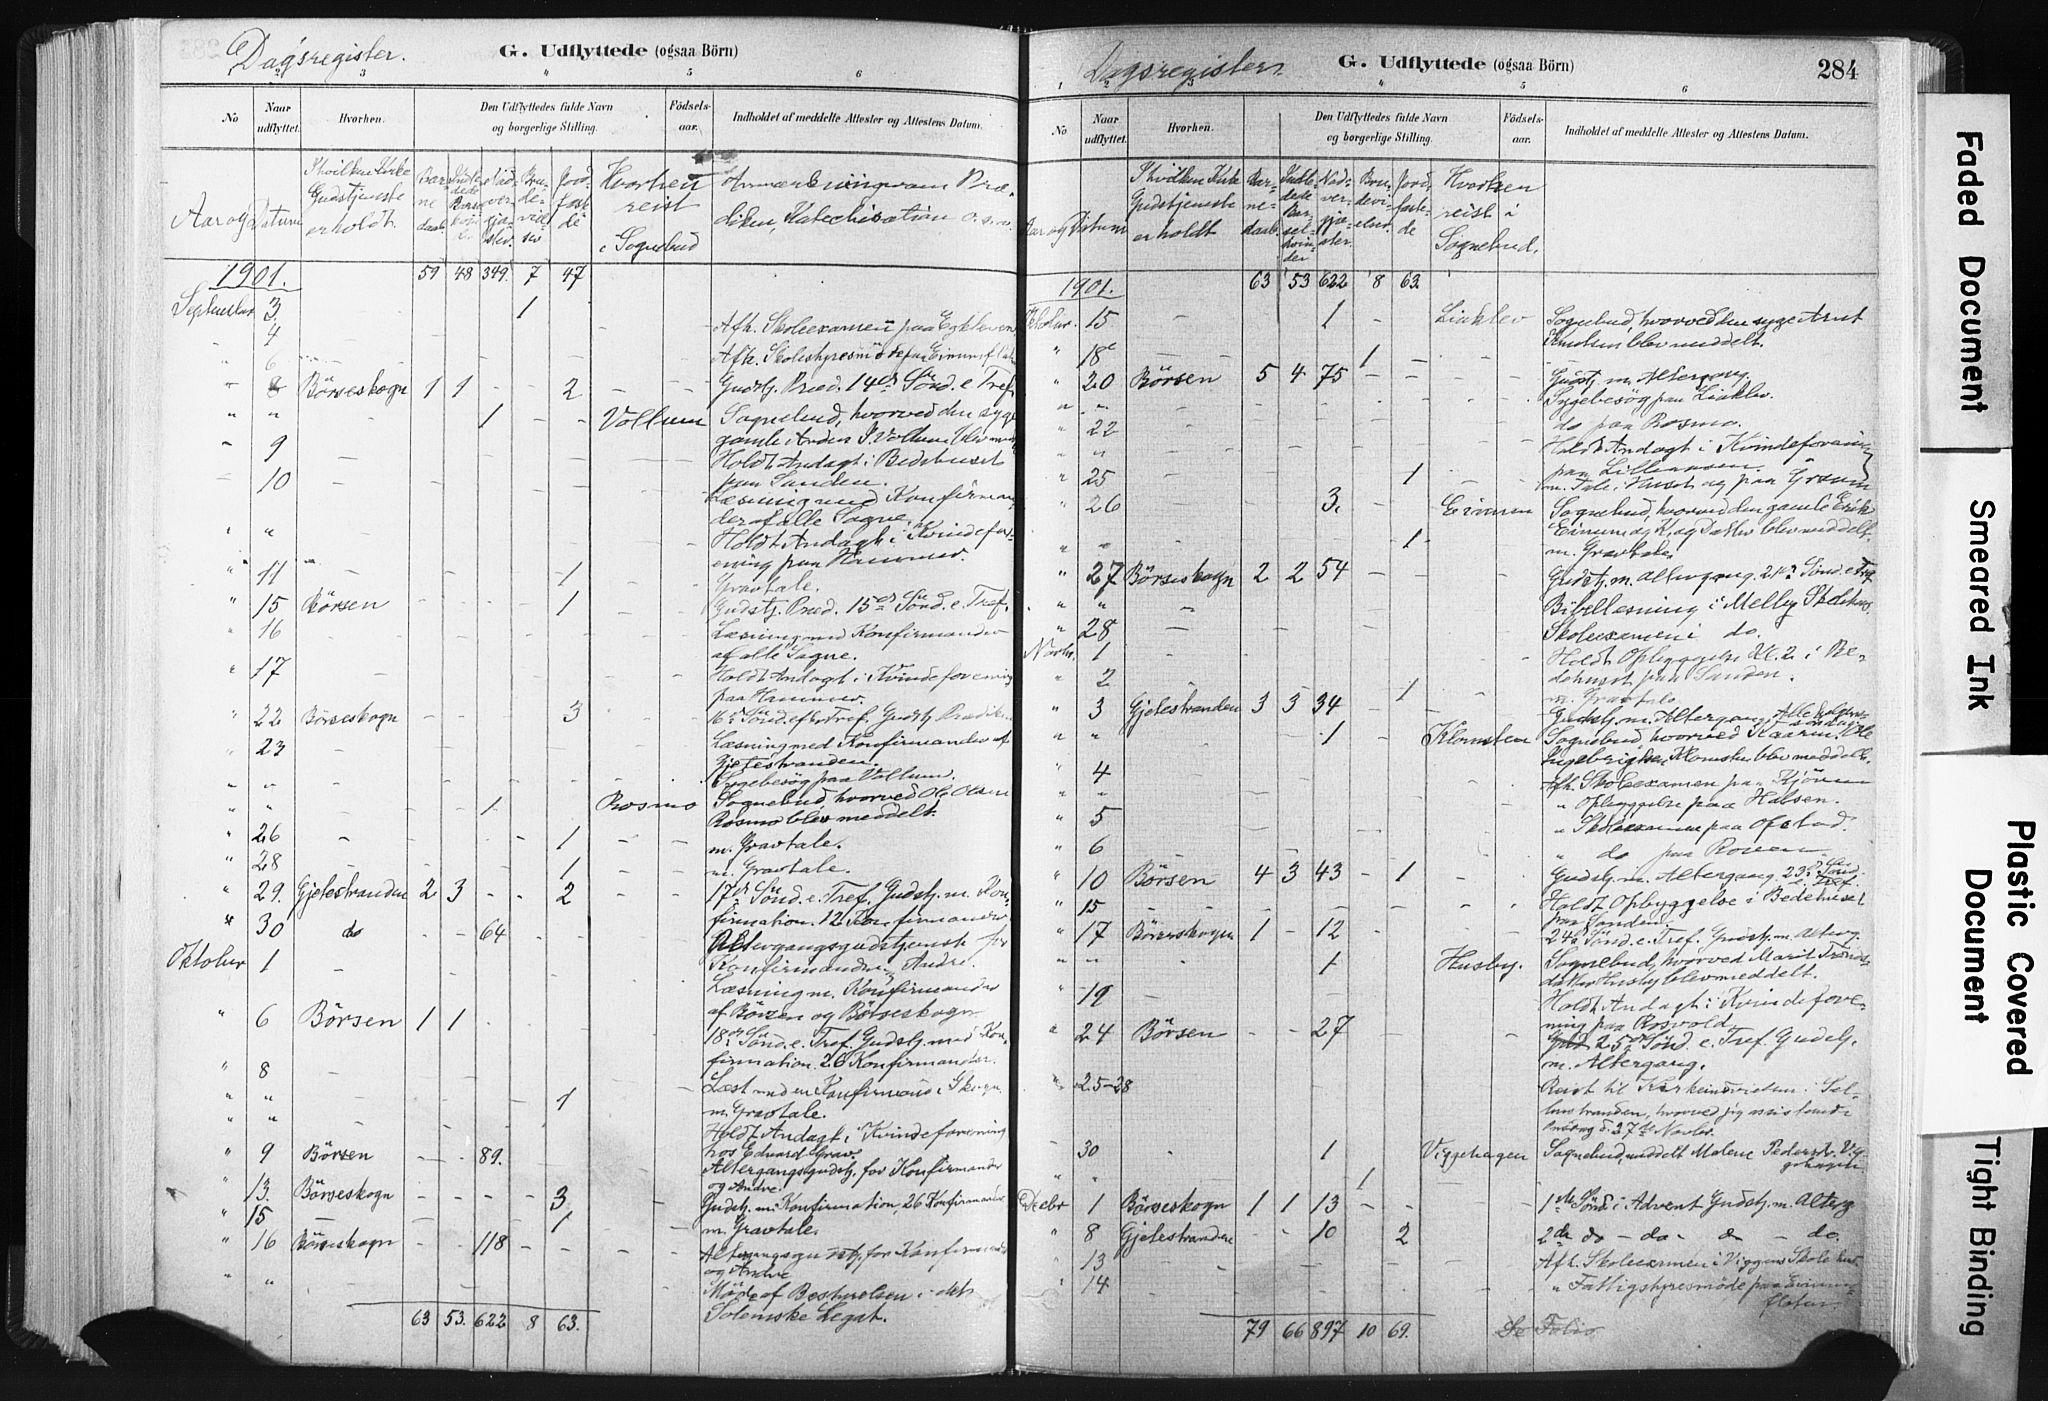 Dagsregister.
G. Udflyttede (ogsaa Börn)
1 2 3 4 5 6
No
Naar udflyttet.
Hvorhen.
Den Udflyttedes fulde Navn
og borgerlige Stilling.
Födsels-
aar.
Indholdet af meddelte Attester og Attestens Datum.
Aar og Datum
I hvilken Kirke
Gudstjeneste
er holdt.
Bar-
ne
daab
Hvorhen
reist
i Sognebud
1901. 59 48 349. 7 47
September 3. 1
4 Afh. Skoleexamen paa
6 Afh. Skolestyresmöde paa
8 Börseskogn 1 1 2 Gudstj. Præd. 14de Sönd. e. Tref.
" " 1 Vollum Sognebud, hvorved den syge
gamle Anders J. Vollum blev
9 Holdt Andagt i Bedehuset
paa Sanden.
10 Læsning med Konfirman-
der af alle Sogne.
" " Holdt Andagt i Kvindefor-
ening paa Hammer.
" 11 1 Gravtale.
" 15 Börsen 1 Gudstj. Præd. 15de Sönd. e. Tref.
" 16 Læsning med Konfirmander
af alle Sogne.
" 17 Holdt Andagt i Kvindeforening
paa Hammer.
" 22 Börseskogn 3 16de Sönd. eft. Tref. Gudstj.
" 23 Læsning med Konfirmander af
Gjetestranden.
" " Sygebesög paa Vollum.
" " 1 Rosmo Sognebud, hvorved Ole Olsen
Rosmo blev meddelt.
" 26 1 m. Gravtale.
" 28 1 m. Gravtale.
" 29. Gjetestranden 2 3 2 17de Sönd. e. Tref. Gudstj. m. Kon-
firmation. 12 Konfirmander
" 30 do 64 Altergangsgudstjeneste for
Konfirmander, Andre.
Oktober 1 Læsning m. Konfirmander
af Börsen og Börseskogn
" 6 Börsen 1 1 18de Sönd. e. Tref. Gudstj. med Kon-
firmation. 26 Konfirmander.
" 8 Læst med en Konfirmand i Skogn.
" " 1 m. Gravtale.
" " Holdt Andagt i Kvindeforening
hos Edvard Grav.
" 9 Börsen 89. Altergangsgudstj. for Konfirmander
og Andre.
" 13. Börseskogn 3 Gudstj. m. Konfirmation, 26 Konfirmander
" 15 1 m. Gravtale.
" 16 Börseskogn 118 Altergangsgudstj. for Konfirmander
og Andre
" " Möde af Bestyrelsen i det
Solemske Legat.
63 53. 622 8 63.
Dagsregister.
G. Udflyttede (ogsaa Börn)
284
1 2 3 4 5 6
No
Naar
udflyttet.
Hvorhen.
Den Udflyttedes fulde Navn
og borgerlige Stilling.
Födsels-
aar.
Indholdet af meddelte Attester og Attestens Datum.
Aar og Datum
I hvilken Kirke
Gudstjeneste
er holdt
Bar-
ne-
daab.
Indle-
dede
Bar-
sel-
kvin-
der
Nad-
ver-
gjæ-
ster.
Bru-
devi-
elser.
Jord-
faste-
de
Hvorhen
reist i
Sognebud.
1901. 63 53 622 8 63.
Oktober. 15 1 Liaklev Sognebud, hvorved den syge Arnt
Knutsen blev meddelt.
" 18 1
" 20 Börsen 5 4 75 Gudstj. m. Altergang.
" " Sygebesög paa Liaklev.
" 22 do paa Rosmo.
" " Holdt Andagt i Kvindeforening
paa
" 25 1 m. Tale i Huset og paa Graven
" 26 3. Eirumen Sognebud, hvorved den gamle Erik
Eirum og K. og Datter blev meddelt.
" " 1 m. Gravtale.
" 27 Börseskogn 2 2 54 Gudstj. m. Altergang. 21de Sönd. e. Tref
" " Bibellesning i Melby Skolehus.
" 28 Skoleexamen i do.
Novbr. 1 Holdt Opbyggelse Kl. 2 i Be-
dehuset paa Sanden.
" 2 1 m. Gravtale
" 3 Gjetestranden 3 3 34 Gudstj. m. Altergang. Alle helgens-
söndag.
" " 1 Klomsten Sognebud, hvorved Karen Ole
Ingebrigtsen Klomsten blev meddelt.
" 4 Afh. Skoleexamen paa
" " " Opbyggelse paa Halsen.
" 5 " Skoleexamen paa Ofstad.
" 6 " do paa
" 10 Börsen 4 3 43 1 Gudstj. m. Altergang. 23de Sönd.
e. Tref.
" 15 Holdt Opbyggelse i Bedehuset
paa Sanden
" 17 Börseskogn 1 - 12 24de Sönd. e. Tref. Gudstj. m. Alterg.
" " 1 Husby. Sognebud, hvorved Marit Tronds-
datter Husby blev meddelt.
" 19 Holdt Andagt i Kvindefore-
ning paa Rosvold.
" 24 Börsen 27 25de Sönd. e. Tref. Gudstj.
m. Altergang.
" 25-28 Reist til Kirkeindvielsen i
stranden, hvorved jeg assisterede
d. 27de Novbr.
30 1 Viggehagen Sognebud, meddelt Malene Pedersdr. Vig-
gehagen
" " 1
Decbr 1 Börseskogn 1 1 13 1ste Sönd. i Advent Gudstj. m. Alterg.
" 8 Gjetestranden 10 2 2den do - do - do - do.
" 13 Afh. Skoleexamen i Viggens Skolehus
" 14 " Fattigstyresmöde paa
79 66 897 10 69. Se Folio
Faded Document
Smeared Ink
Plastic Covered
Document
Tight Binding